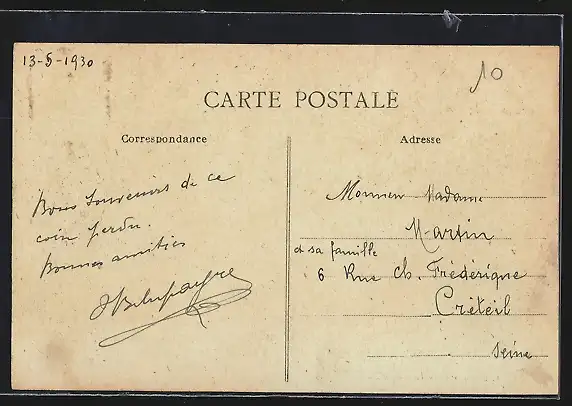 13-5-1930
10
CARTE POSTALE
Correspondance
Adresse
Bons souvenirs de ce
coin perdu.
Bonnes amitiés
Monsieur Madame
Martin
et sa famille
6 Rue Ch. Frédérique
Créteil
Seine